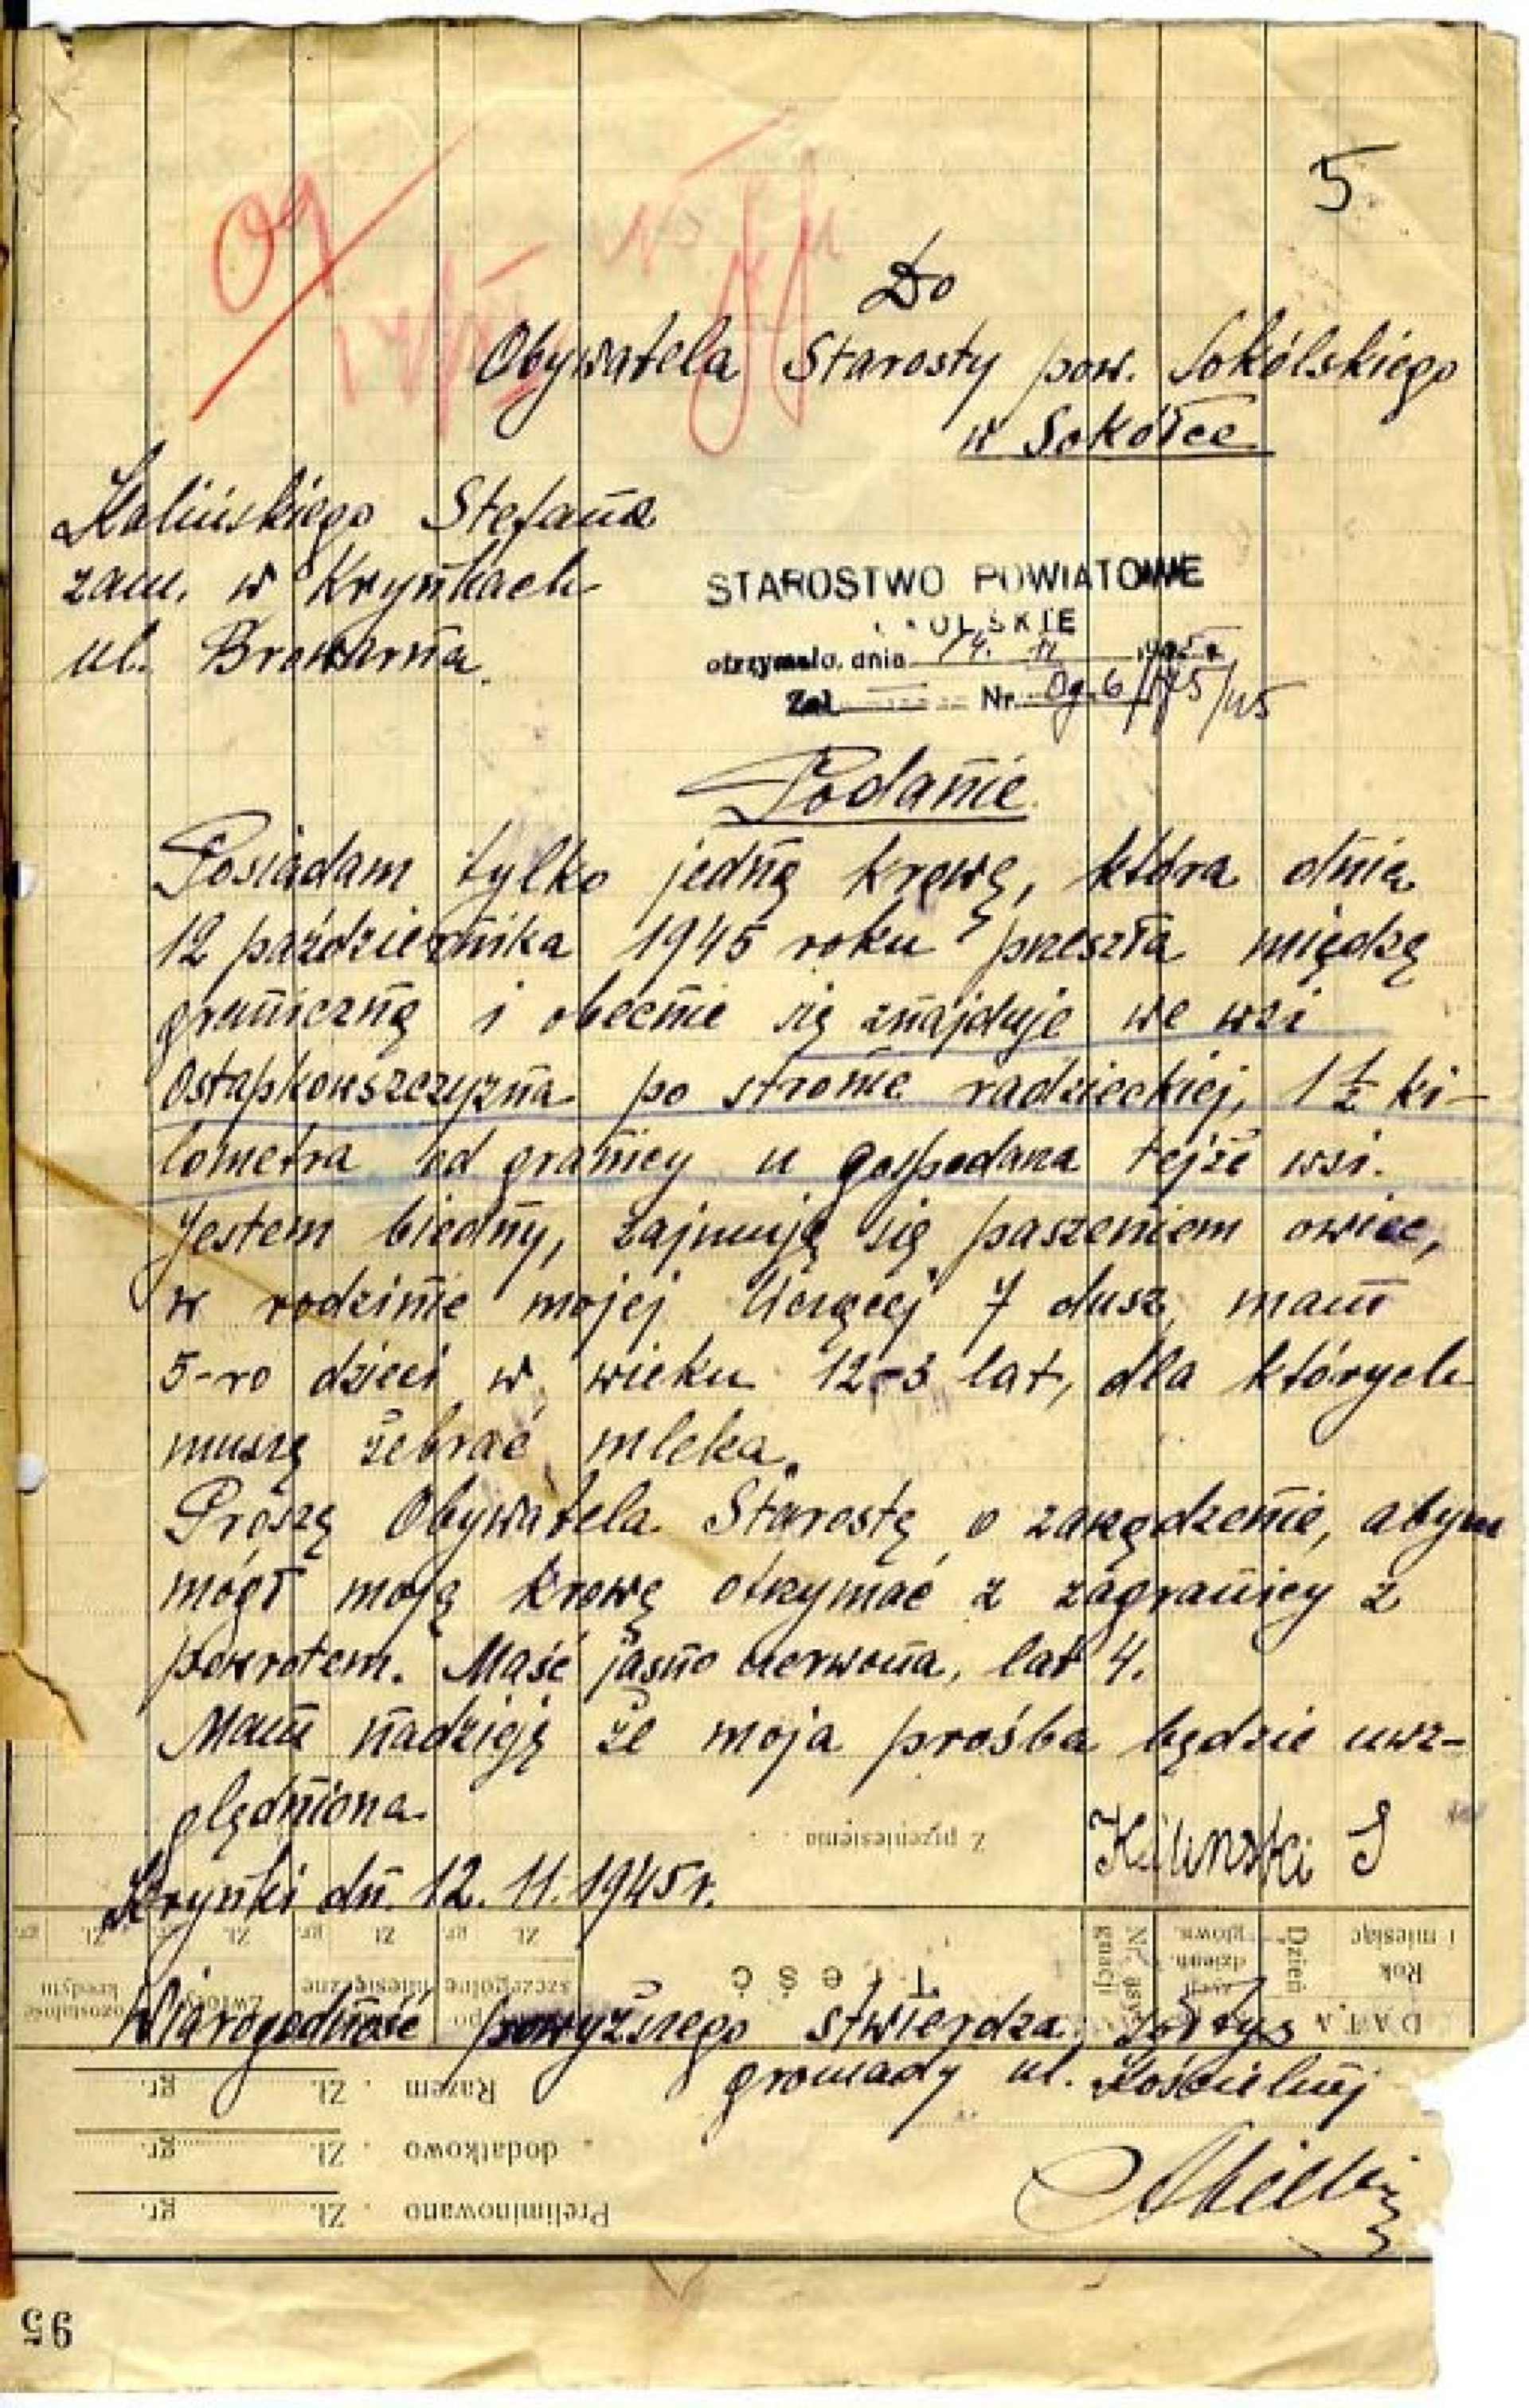 5
Og
Do
Obywatela Starosty pow. Sokólskiego
w Sokółce
Kalińskiego Stefana
zam. w Krynkach
ul. Browarna.
STAROSTWO POWIATOWE
OLSKIE
otrzymało, dnia 14. 11
Zał. Nr. Og. 6/ /45
Podanie
Posiadam tylko jedną krowę, która dnia
12 października 1945 roku przeszła miedzę
graniczną i obecnie się znajduje we wsi
Ostapkowszczyzna po stronie radzieckiej, 1 1/2 ki-
lometra od granicy u gospodarza tejże wsi.
Jestem biedny, zajmuję się paszeniem owiec,
w rodzinie mojej liczącej 7 dusz, mam
5-ro dzieci w wieku 12-3 lat, dla których
muszę żebrać mleka.
Proszę Obywatela Starostę o zarządzenie, abym
mógł moją krowę otrzymać z zagranicy z
powrotem. Maść jasno czerwona, lat 4.
Mam nadzieję że moja prośba będzie uwz-
ględniona.
Z przeniesienia
Kalinski S
Krynki dn. 12. 11. 1945 r.
Zł. gr. Zł. gr. Zł. gr. Zł. gr.
Treść
DATA
Rok i miesiąc
Dzień
Wiarogodność powyższego stwierdza sołtys
gromady ul. Kościelnej
Razem Zł. gr.
dodatkowo Zł. gr.
Preliminowano Zł. gr.
95